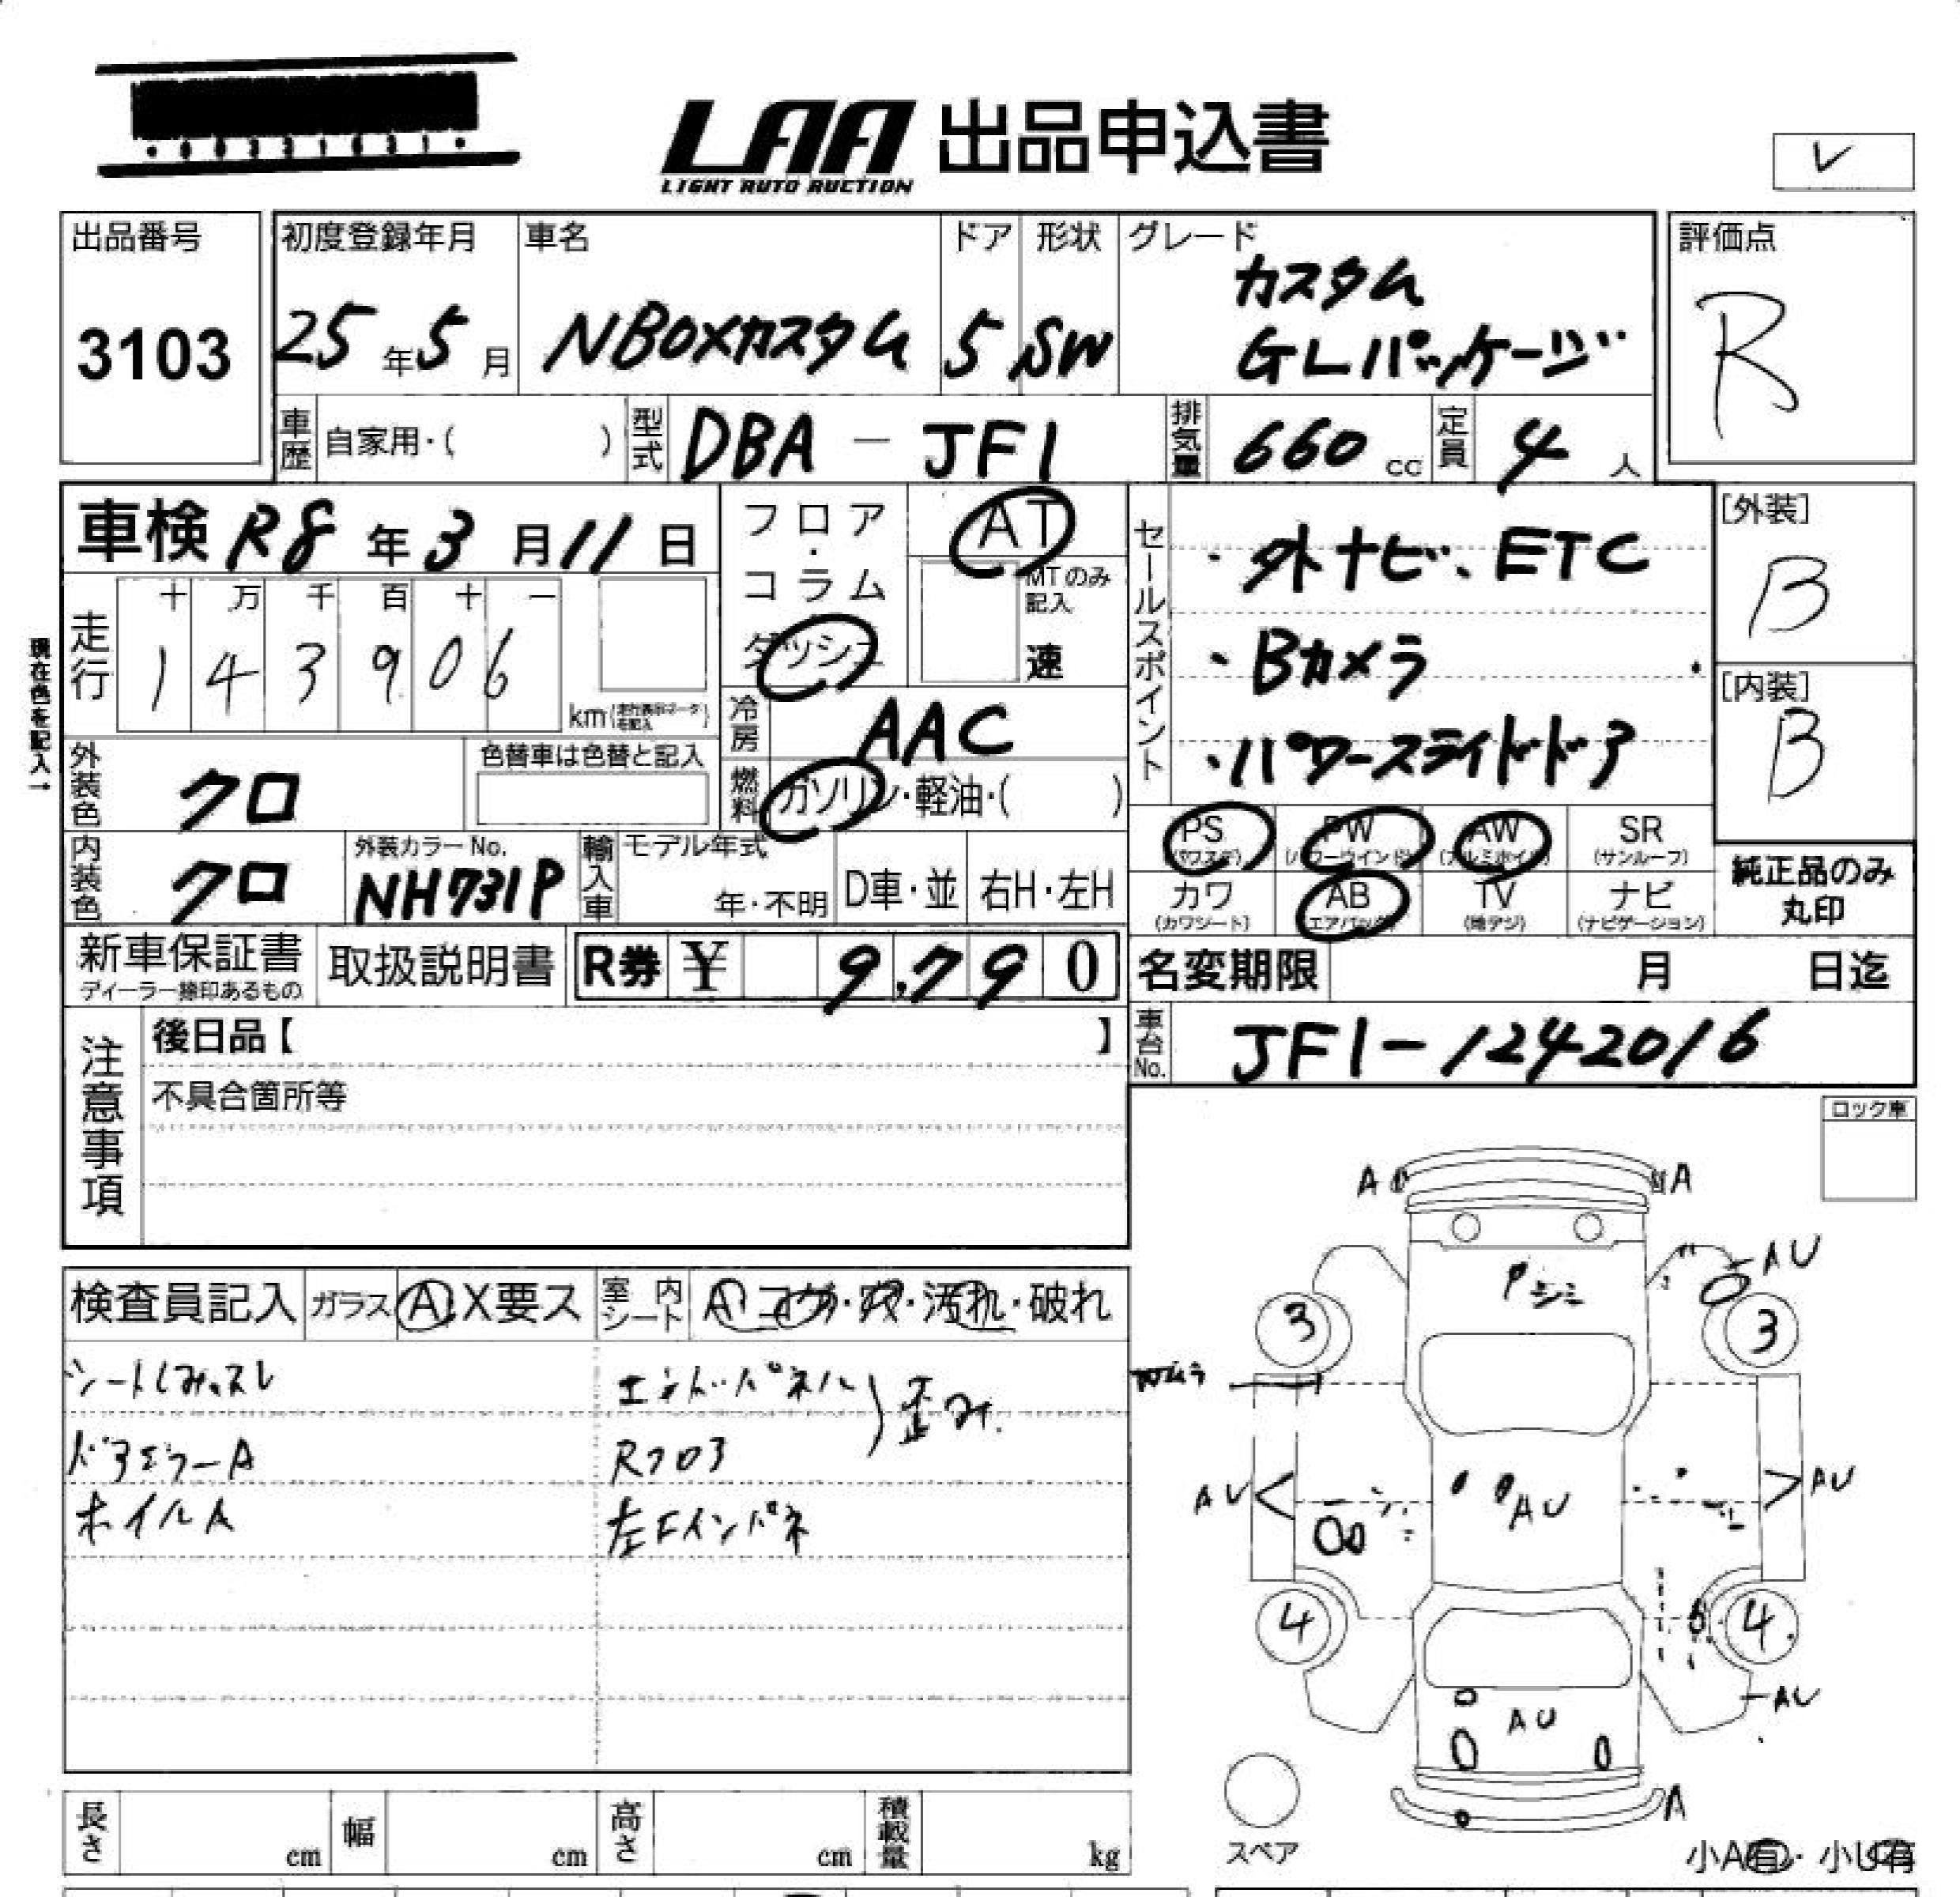 LAA 出品申込書
LIGHT AUTO AUCTION
出品番号
3103
初度登録年月
25年5月
車名
NBOXカスタム
ドア
5
形状
SW
グレード
カスタム
GLパッケージ
評価点
R
車歴 自家用・( )
型式 DBA - JF1
排気量 660 cc
定員 4 人
車検 R8年3月11日
フロア・コラム
ダッシュ
AT
MTのみ記入
速
セールスポイント
・外ナビ、ETC
・Bカメラ
・パワースライドドア
[外装]
B
[内装]
B
現在色を記入→
走行
十 万 千 百 十 一
1 4 3 9 0 6
km
冷房 AAC
燃料 ガソリン・軽油・( )
外装色 クロ
色替車は色替と記入
内装色 クロ
外装カラーNo.
NH731P
輸入車
モデル年式
年・不明
D車・並
右H・左H
PS
(パワステ)
PW
(パワーウインド)
AW
(アルミホイル)
SR
(サンルーフ)
カワ
(カワシート)
AB
(エアバック)
TV
(地デジ)
ナビ
(ナビゲーション)
純正品のみ
丸印
新車保証書
ディーラー捺印あるもの
取扱説明書
R券 ¥ 9,790
名変期限 月 日迄
車台No. JF1-1242016
注意事項
後日品【 】
不具合箇所等
ロック車
検査員記入
ガラス A・X要ス
室内シート A・コゲ・穴・汚れ・破れ
シートしみ、スレ
ドアミラーA
ホイルA
エンドパネル
Rフロア
歪み
左Fインパネ
A
A
AU
3
3
AU
AU
AU
4
4
AU
AU
A
スペア
小A有・小U有
長さ cm
幅 cm
高さ cm
積載量 kg